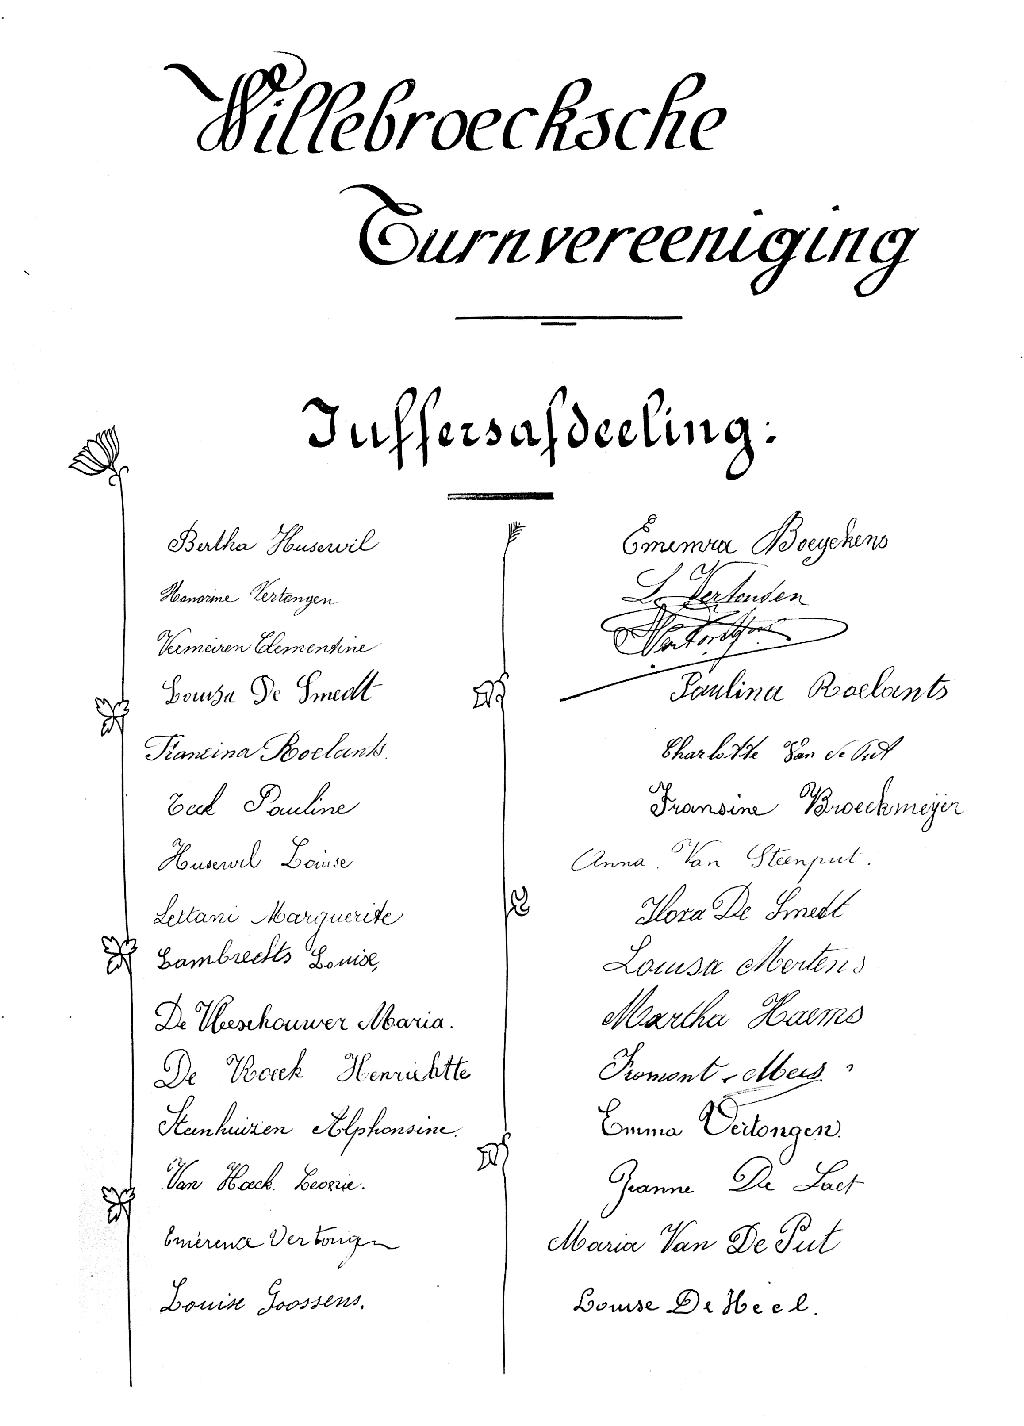 Willebroecksche
Turnvereeniging
Juffersafdeeling:
Bertha Huserwil
Honorine Vertongen
Vermeiren Clementine
Louisa De Smedt
Francina Roelants.
Pauline
Huserwil Louise
Lettani Marguerite
Lambrechts Louise,
De Vleeschouwer Maria.
De Kock Henriëtte
Steenhuizen Alphonsine.
Van Hoeck. Leonie.
Emerence Vertongen
Louise Goossens.
Boeykens
L. Vertonden
Paulina Roelants
Charlotte Van de Put
Fransine Broeckmeÿer
Anna. Van Steenput.
Flora De Smedt
Louisa Mertens
Martha Haems
Fromont - Mees
Emma Vertongen.
Jeanne De Laet
Maria Van De Put
Louise De Heel.